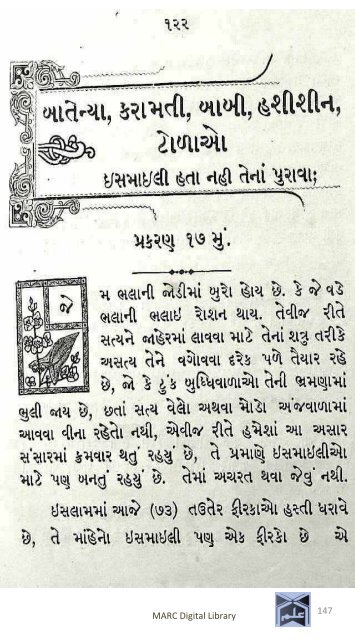 ૧૨૨
બાતેન્યા, કરામતી, બાબી, હશીશીન,
ટોળાઓ
ઇસમાઇલી હતા નહી તેનાં પુરાવા;
પ્રકરણ ૧૭ મું.
જે
મ ભલાની જોડીમાં બુરો હોય છે. કે જે વડે
ભલાની ભલાઇ રોશન થાય. તેવીજ રીતે
સત્યને જાહેરમાં લાવવા માટે તેનાં શત્રુ તરીકે
અસત્ય તેને વગોવવા દરેક પળે તૈયાર રહે
છે, જો કે ટુંક બુધ્ધિવાળાઓ તેની ભ્રમણામાં
ભુલી જાય છે, છતાં સત્ય વેલો અથવા મોડો અંજવાળામાં
આવવા વીના રહેતો નથી, એવીજ રીતે હમેશાં આ અસાર
સંસારમાં ક્રમવાર થતું રહયું છે, તે પ્રમાણે ઇસમાઇલીઓ
માટે પણ બનતું રહયું છે. તેમાં અચરત થવા જેવું નથી.
ઇસલામમાં આજે (૭૩) તઉતેર ફીરકાઓ હસ્તી ધરાવે
છે, તે માંહેનો ઇસમાઇલી પણ એક ફીરકો છે એ
MARC Digital Library
علم
147